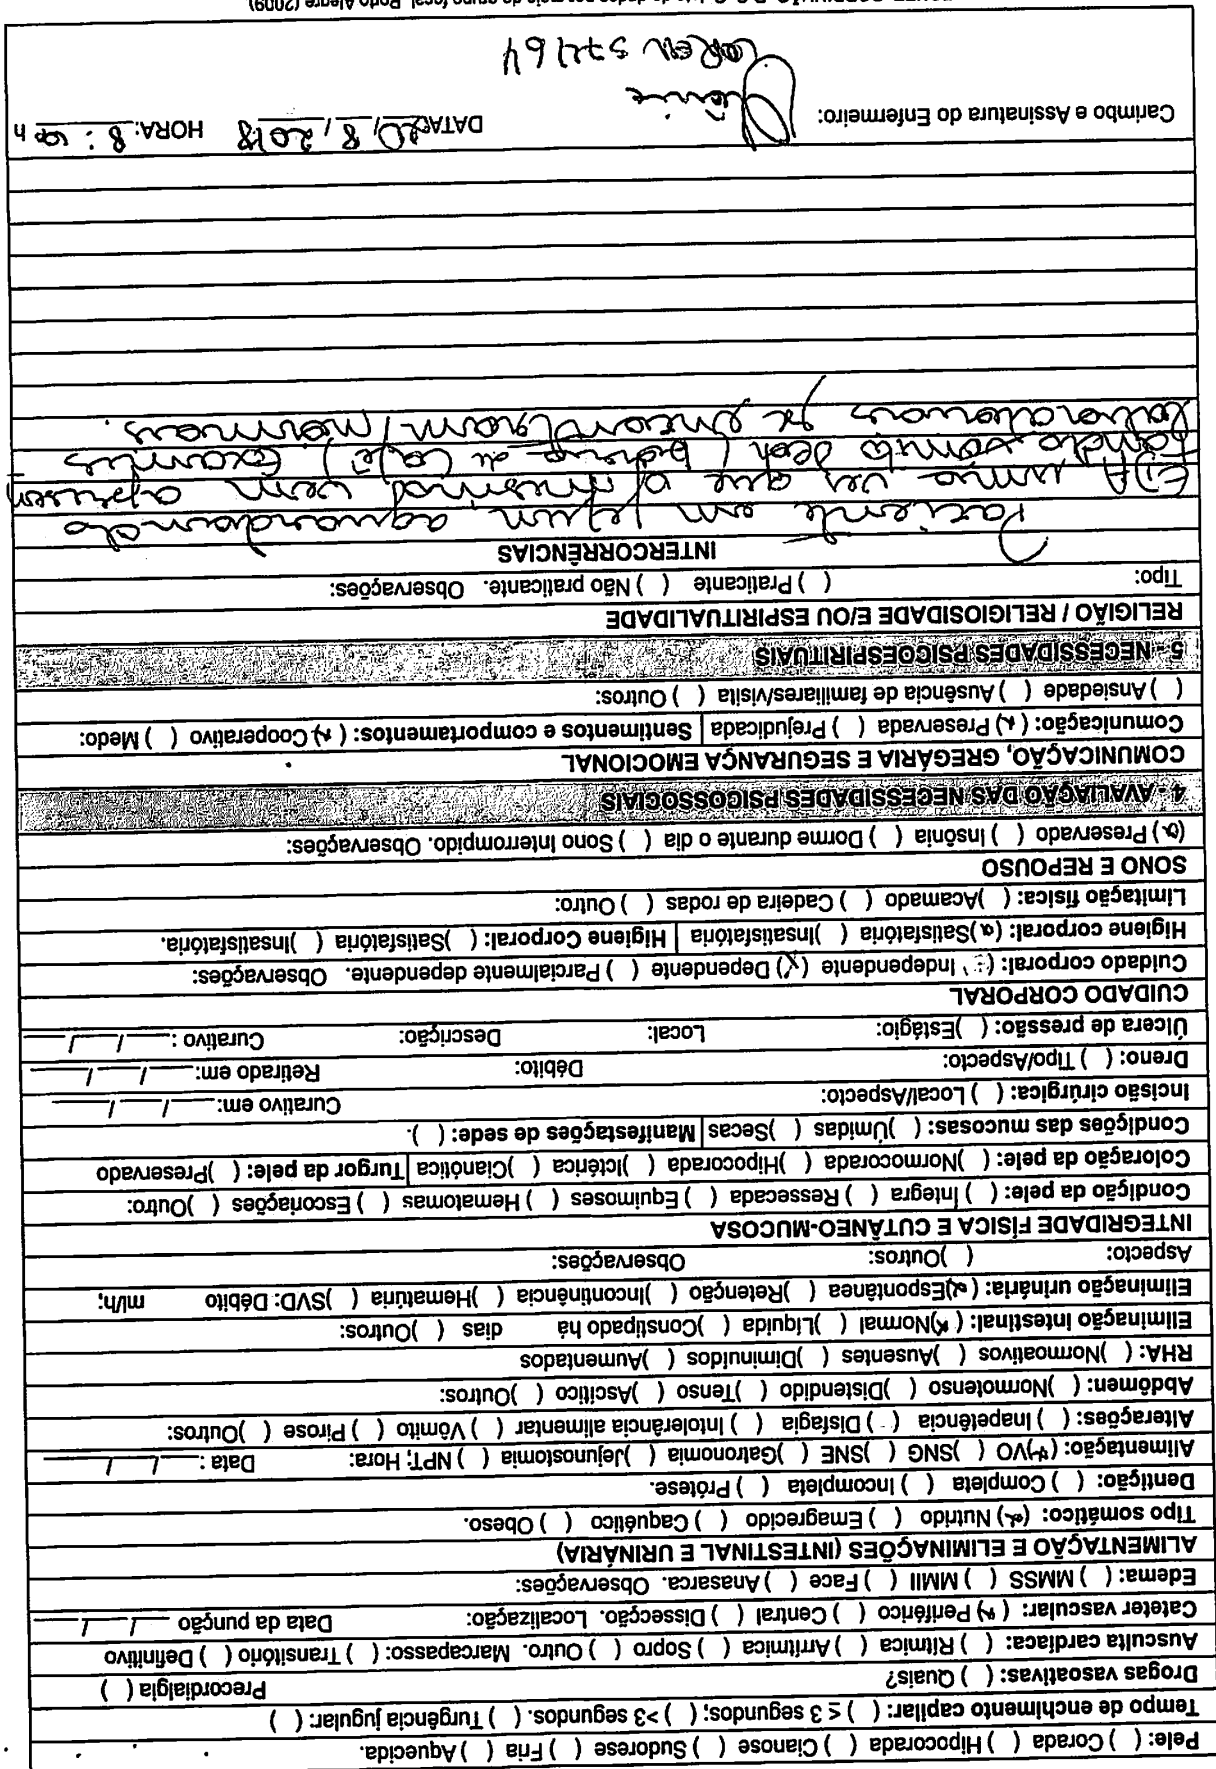 Pele: ( ) Corada ( ) Hipocorada ( ) Cianose ( ) Sudorese ( ) Fria ( ) Aquecida.
Tempo de enchimento capilar: ( ) ≤ 3 segundos; ( ) >3 segundos. ( ) Turgência jugular: ( )
Drogas vasoativas: ( ) Quais? Precordialgia ( )
Ausculta cardíaca: ( ) Rítmica ( ) Arrítmica ( ) Sopro ( ) Outro. Marcapasso: ( ) Transitório ( ) Definitivo
Cateter vascular: (x) Periférico ( ) Central ( ) Dissecção. Localização: Data da punção ___/___/___
Edema: ( ) MMSS ( ) MMII ( ) Face ( ) Anasarca. Observações:
ALIMENTAÇÃO E ELIMINAÇÕES (INTESTINAL E URINÁRIA)
Tipo somático: (x) Nutrido ( ) Emagrecido ( ) Caquético ( ) Obeso.
Dentição: ( ) Completa ( ) Incompleta ( ) Prótese.
Alimentação: (x)VO ( )SNG ( )SNE ( )Gatronomia ( )Jejunostomia ( ) NPT; Hora: Data : ___/___/___
Alterações: ( ) Inapetência ( ) Disfagia ( ) Intolerância alimentar ( ) Vômito ( ) Pirose ( ) Outros:
Abdômen: ( ) Normotenso ( ) Distendido ( )Tenso ( )Ascítico ( )Outros:
RHA: ( )Normoativos ( )Ausentes ( )Diminuídos ( )Aumentados
Eliminação intestinal: (x)Normal ( )Líquida ( )Constipado há dias ( )Outros:
Eliminação urinária: (x)Espontânea ( )Retenção ( )Incontinência ( )Hematúria ( )SVD: Débito ml/h;
Aspecto: ( )Outros: Observações:
INTEGRIDADE FÍSICA E CUTÂNEO-MUCOSA
Condição da pele: ( ) Íntegra ( ) Ressecada ( ) Equimoses ( ) Hematomas ( ) Escoriações ( )Outro:
Coloração da pele: ( )Normocorada ( )Hipocorada ( )Ictérica ( )Cianótica Turgor da pele: ( )Preservado
Condições das mucosas: ( )Úmidas ( )Secas Manifestações de sede: ( ).
Incisão cirúrgica: ( ) Local/Aspecto: Curativo em: ___/___/___
Dreno: ( ) Tipo/Aspecto: Débito: Retirado em: ___/___/___
Úlcera de pressão: ( )Estágio: Local: Descrição: Curativo : ___/___/___
CUIDADO CORPORAL
Cuidado corporal: ( ) Independente (x) Dependente ( ) Parcialmente dependente. Observações:
Higiene corporal: (x)Satisfatória ( )Insatisfatória Higiene Corporal: ( )Satisfatória ( )Insatisfatória.
Limitação física: ( )Acamado ( ) Cadeira de rodas ( ) Outro:
SONO E REPOUSO
(x) Preservado ( ) Insônia ( ) Dorme durante o dia ( ) Sono Interrompido. Observações:
4 - AVALIAÇÃO DAS NECESSIDADES PSICOSSOCIAIS
COMUNICAÇÃO, GREGÁRIA E SEGURANÇA EMOCIONAL
Comunicação: (x) Preservada ( ) Prejudicada Sentimentos e comportamentos: (x) Cooperativo ( ) Medo:
( ) Ansiedade ( ) Ausência de familiares/visita ( ) Outros:
5 - NECESSIDADES PSICOESPIRITUAIS
RELIGIÃO / RELIGIOSIDADE E/OU ESPIRITUALIDADE
Tipo: ( ) Praticante ( ) Não praticante. Observações:
INTERCORRÊNCIAS
Paciente em jejum aguardando
EDA uma vez que o mesmo vem apresen
tando vomito (borra de café) Exames
laboratoriais se encontram normais.
Carimbo e Assinatura do Enfermeiro:
COREN 57464
DATA: 20/8/2018 HORA: 8:00 h